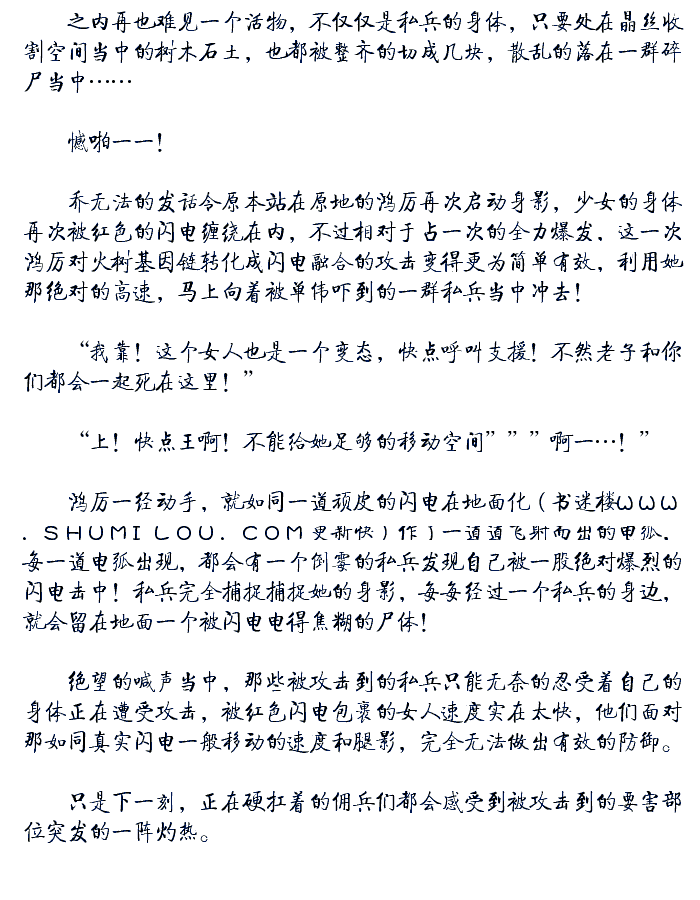 之内再也难见一个活物，不仅仅是私兵的身体，只要处在晶丝收
割空间当中的树木石土，也都被整齐的切成几块，散乱的落在一群碎
尸当中……
憾啪一一！
乔无法的发话令原本站在原地的鸿厉再次启动身影，少女的身体
再次被红色的闪电缠绕在内，不过相对于占一次的全力爆发．这一次
鸿厉对火树基因链转化成闪电融合的攻击变得更为简单有效，利用她
那绝对的高速，马上向着被单伟吓到的一群私兵当中冲去！
“我靠！这个女人也是一个变态，快点呼叫支援！不然老子和你
们都会一起死在这里！”
“上！快点王啊！不能给她足够的移动空间”””啊一…！”
鸿厉一经动手，就如同一道顽皮的闪电在地面化（书迷楼ＷＷＷ
．ＳＨＵＭＩＬＯＵ．ＣＯＭ更新快）作］一道道飞射而出的甲狐．
每一道电弧出现，都会有一个倒霉的私兵发现自己被一股绝对爆烈的
闪电击中！私兵完全捕捉捕捉她的身影，每每经过一个私兵的身边，
就会留在地面一个被闪电电得焦糊的尸体！
绝望的喊声当中，那些被攻击到的私兵只能无奈的忍受着自己的
身体正在遭受攻击，被红色闪电包裹的女人速度实在太快，他们面对
那如同真实闪电一般移动的速度和腿影，完全无法做出有效的防御。
只是下一刻，正在硬扛着的佣兵们都会感受到被攻击到的要害部
位突发的一阵灼热。